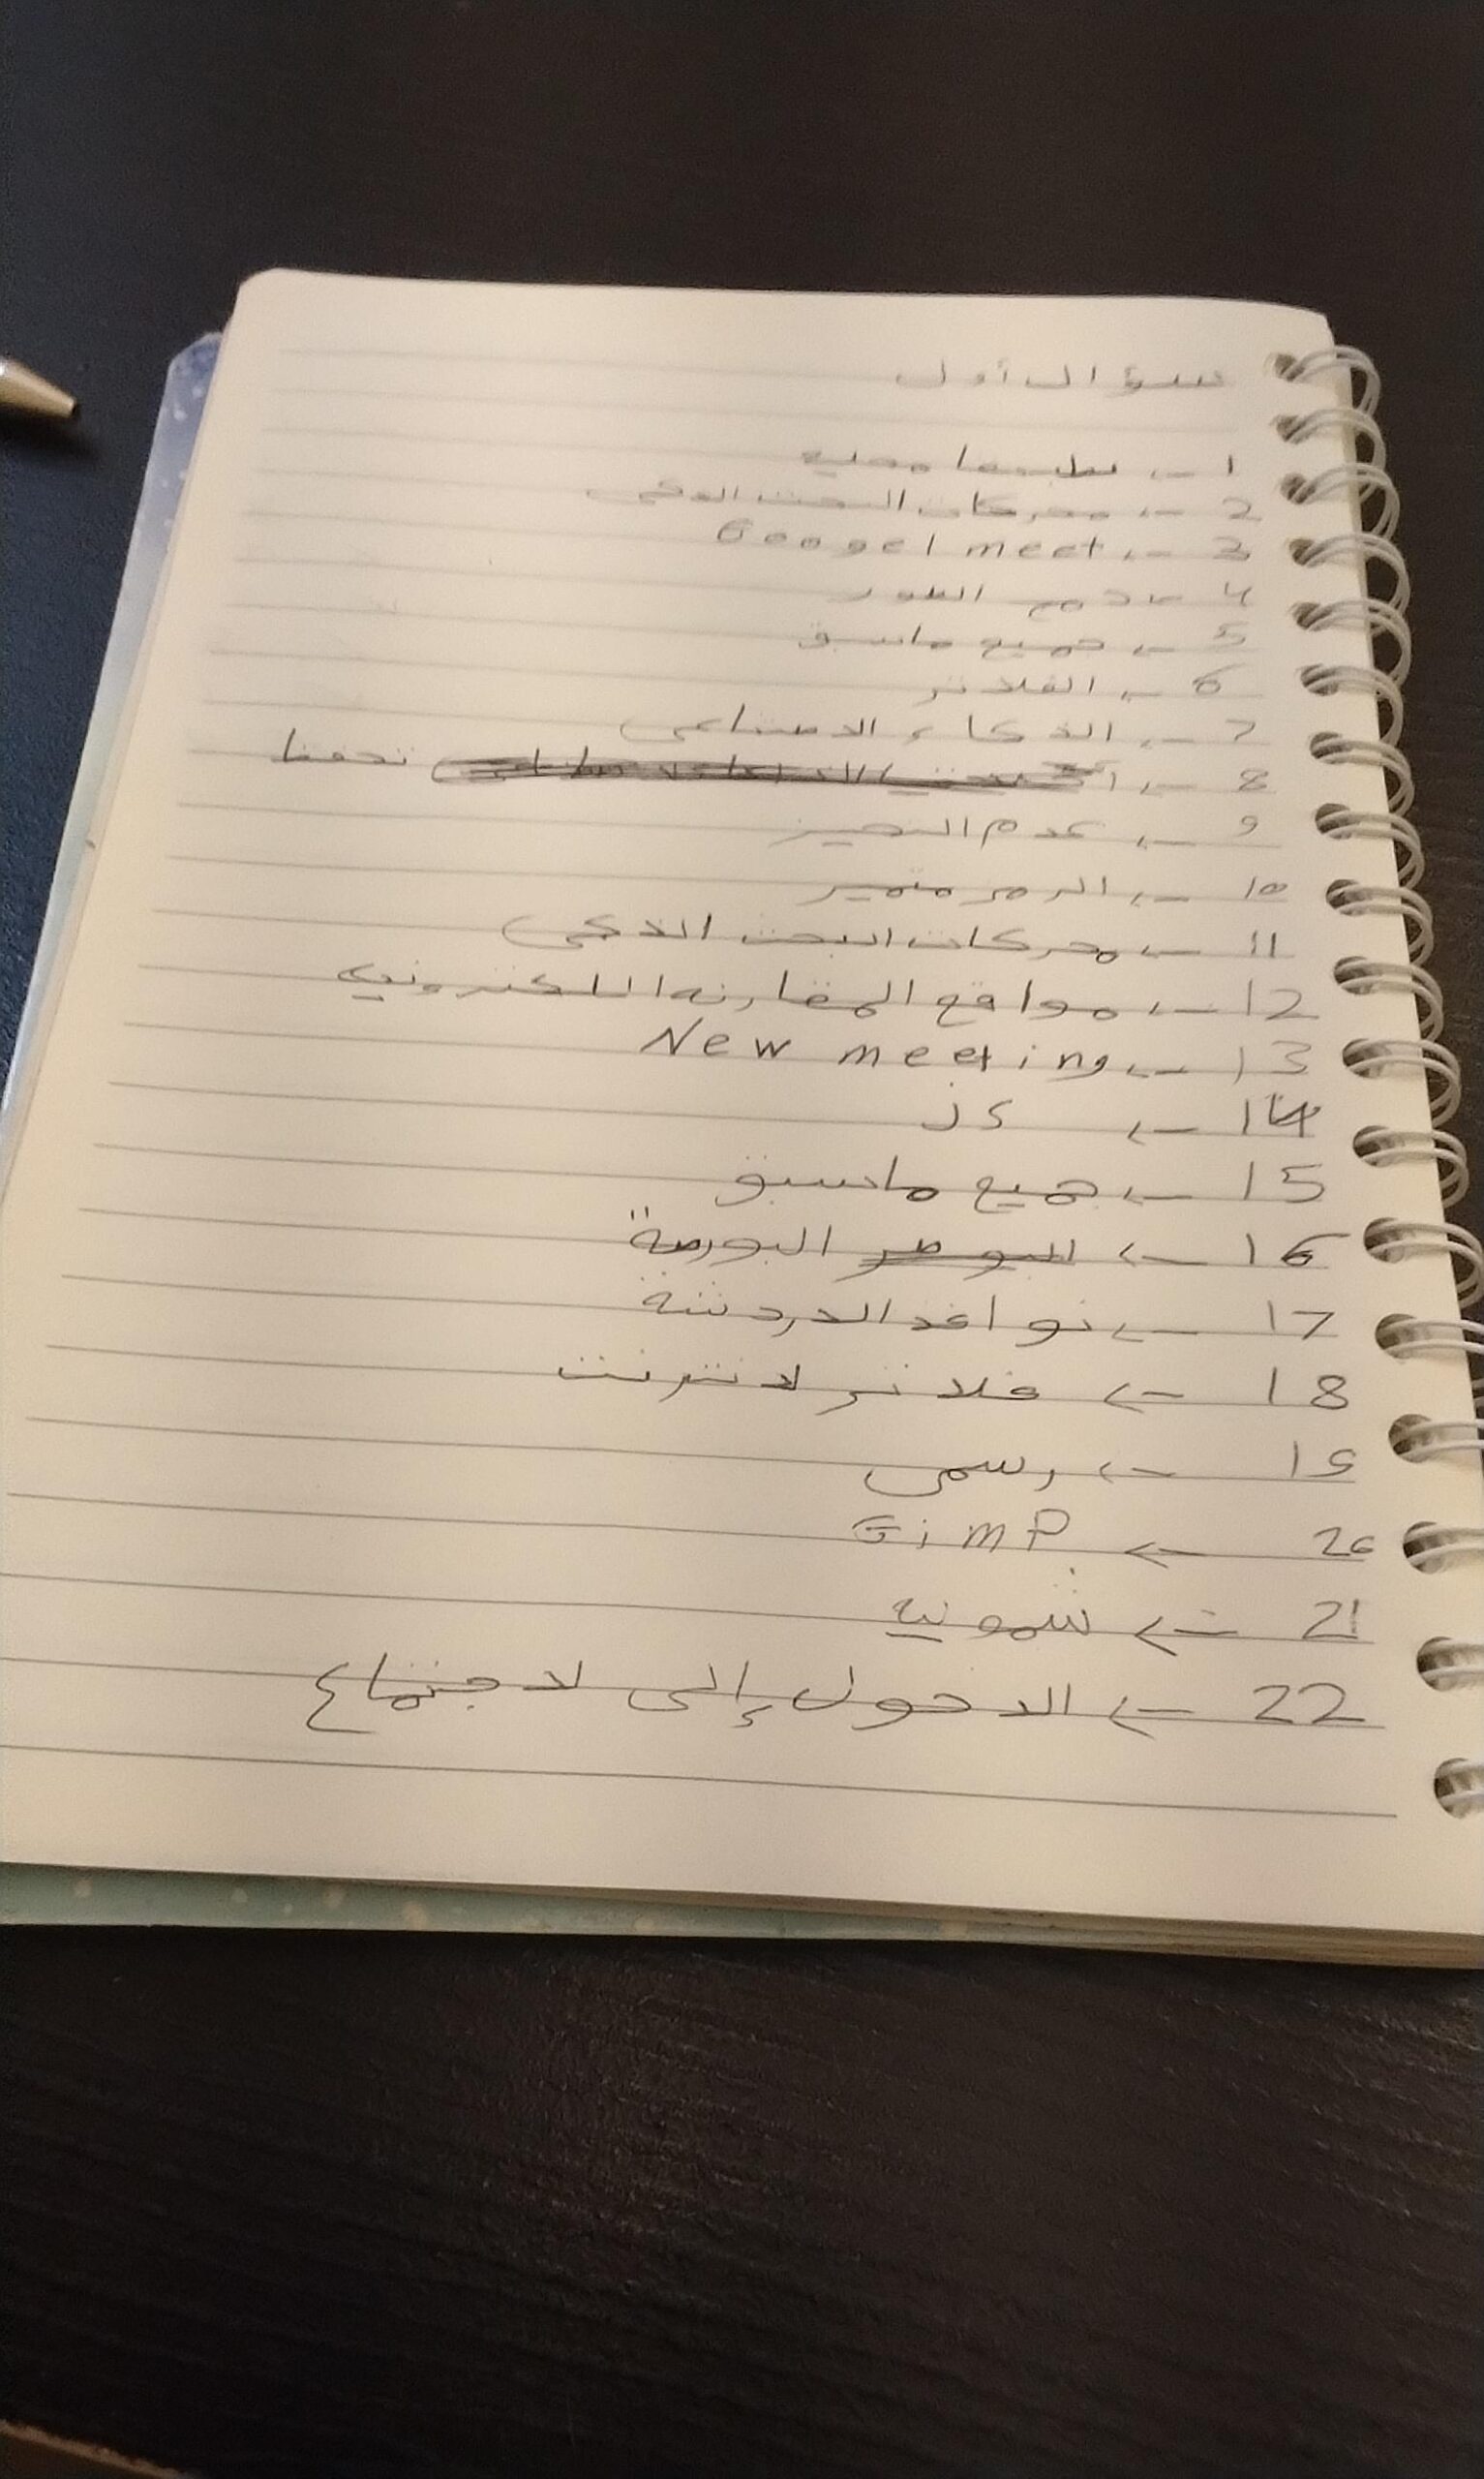 سؤال أول
1 ->
2 -> محركات البحث الذكي
3 -> Googel meet
4 -> دمج الصور
5 -> جميع ماسبق
6 -> الفلاتر
7 -> الذكاء الاصتناعي
8 ->
9 -> عدم التحيز
10 -> الرمز متميز
11 -> محركات البحث الذكي
12 -> مواقع المقارنه اللكترونيه
13 -> New meeting
14 ->
15 -> جميع ماسبق
16 -> البورصة
17 -> نوافذ الدردشة
18 -> فلاتر لانترنت
19 -> رسمي
20 -> GimP
21 -> شمونيه
22 -> الدخول إلى لاجتماع